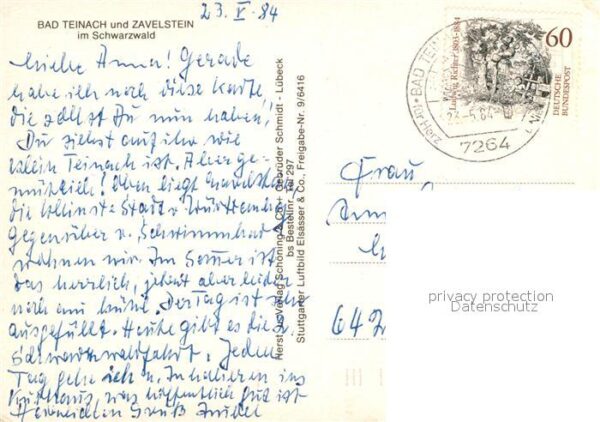 23. V. 84
BAD TEINACH und ZAVELSTEIN
im Schwarzwald
Liebe Anna! Gerade
habe ich noch diese Karte,
die sollst Du nun haben,
Du siehst auf ihr wie
klein Teinach ist. Aber ge-
mütlich! Oben liegt Zavelstein
die kleinste Stadt v. Württemberg
Gegenüber v. Schwimmbad
wohnen wir. Im Sommer ist
das herrlich, jetzt aber leider
noch zu kühl. Der Tag ist sehr
ausgefüllt. Heute gibt es die 2.
Schwarzwaldfahrt. Jeden
Tag gehe ich z. Inhalieren ins
Kurhaus, was hoffentlich gut ist
Herzlichen Gruß
Herst. u. Verlag Schöning & Co + Gebrüder Schmidt - Lübeck
bs Bestellnr. Tei 297
Stuttgarter Luftbild Elsässer & Co., Freigabe-Nr. 9/6416
BAD TEINACH
23.-5.84
7264
Ludwig Richter 1803-1884
60
DEUTSCHE
BUNDESPOST
Frau
642
privacy protection
Datenschutz